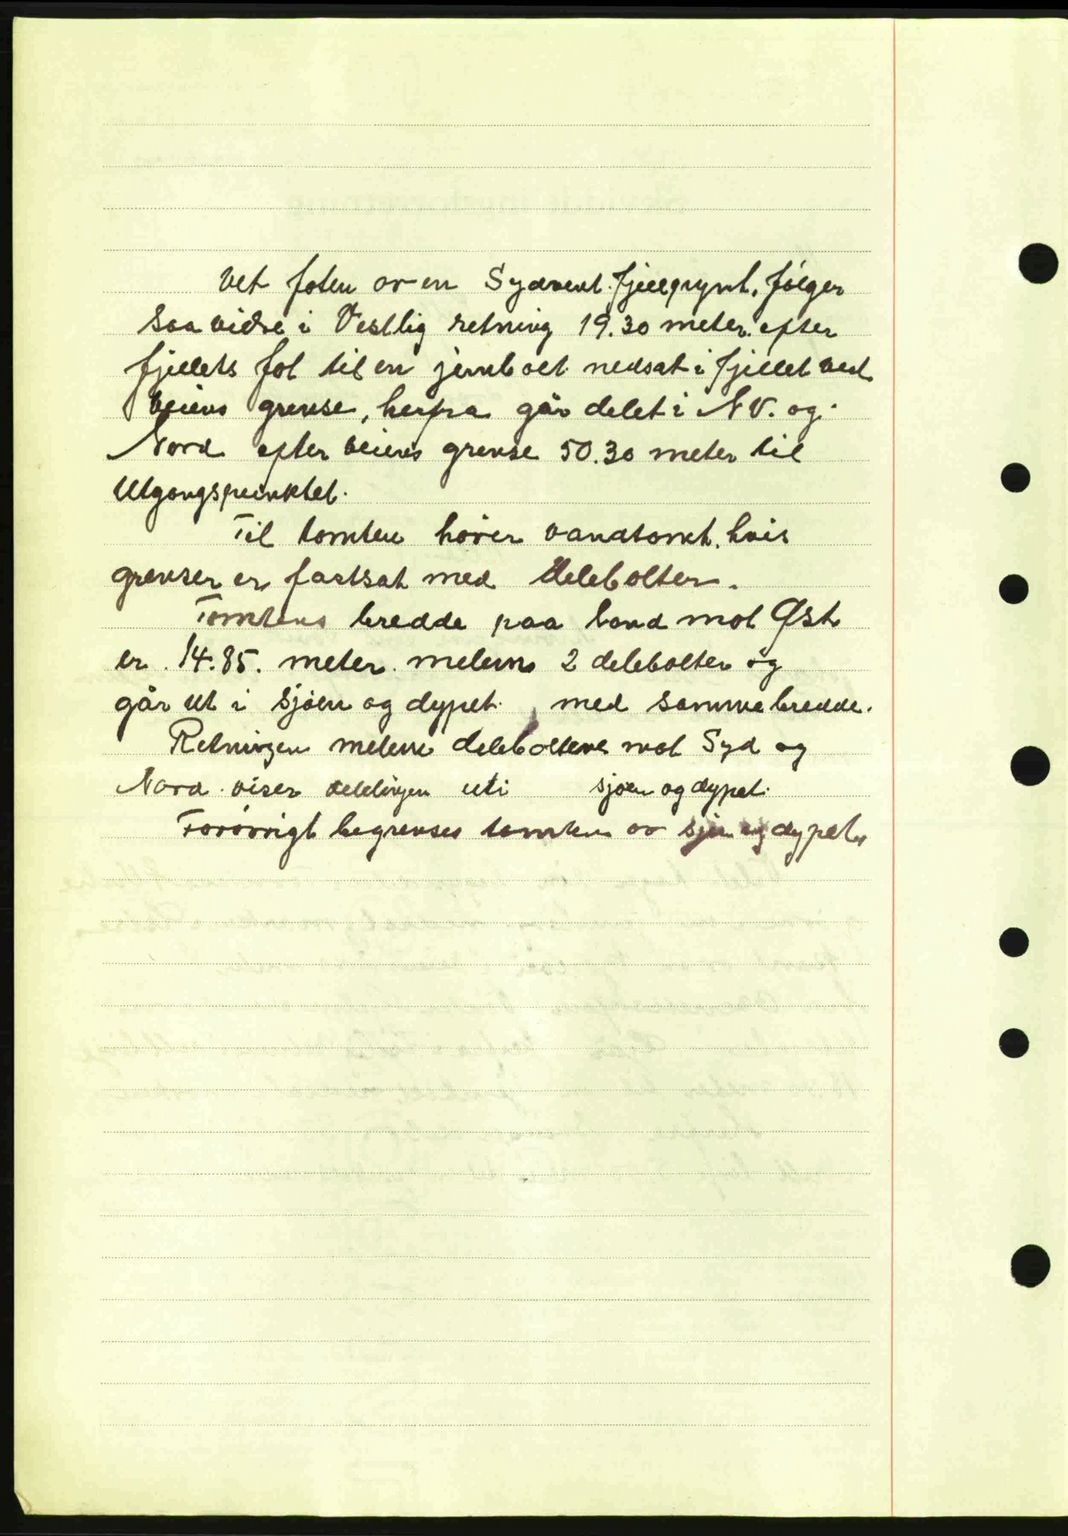 vet foten av en Sydvent fjellpynt, følger
saa vidre i Vestlig retning 19.30 meter efter
fjellets fot til en jernbolt nedsat i fjellet ved
veiens grense, herfra går delet i NV. og
Nord efter veiens grense 50.30 meter til
Utgangspunktet.
Til tomten hører vandtomt, hvis
grenser er fastsat med delebolter.
Tomtens bredde paa land mot Øst
er 14.85. meter melem 2 delebolter og
går ut i sjøen og dypet med samme bredde.
Retningen melem deleboltene mot Syd og
Nord viser delelinjen uti sjøen og dypet.
Forøvrigt begrenses tomten av sjø og dypet